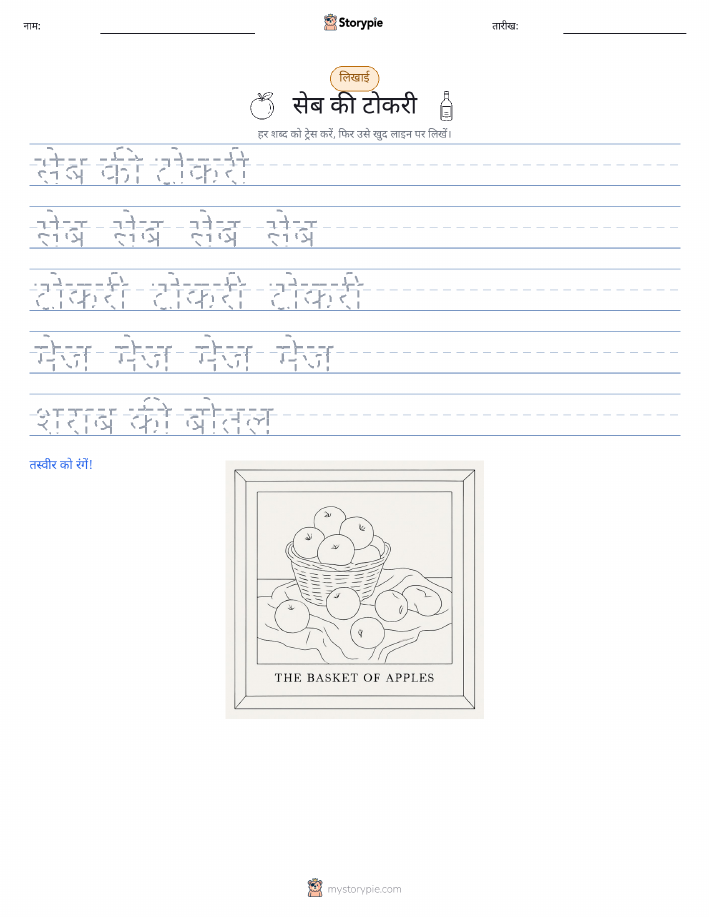 नाम:
Storypie
तारीख:
लिखाई
सेब की टोकरी
हर शब्द को ट्रेस करें, फिर उसे खुद लाइन पर लिखें।
सेब की टोकरी
सेब सेब सेब सेब
टोकरी टोकरी टोकरी
मेज मेज मेज मेज
शराब की बोतल
तस्वीर को रंगें!
THE BASKET OF APPLES
mystorypie.com